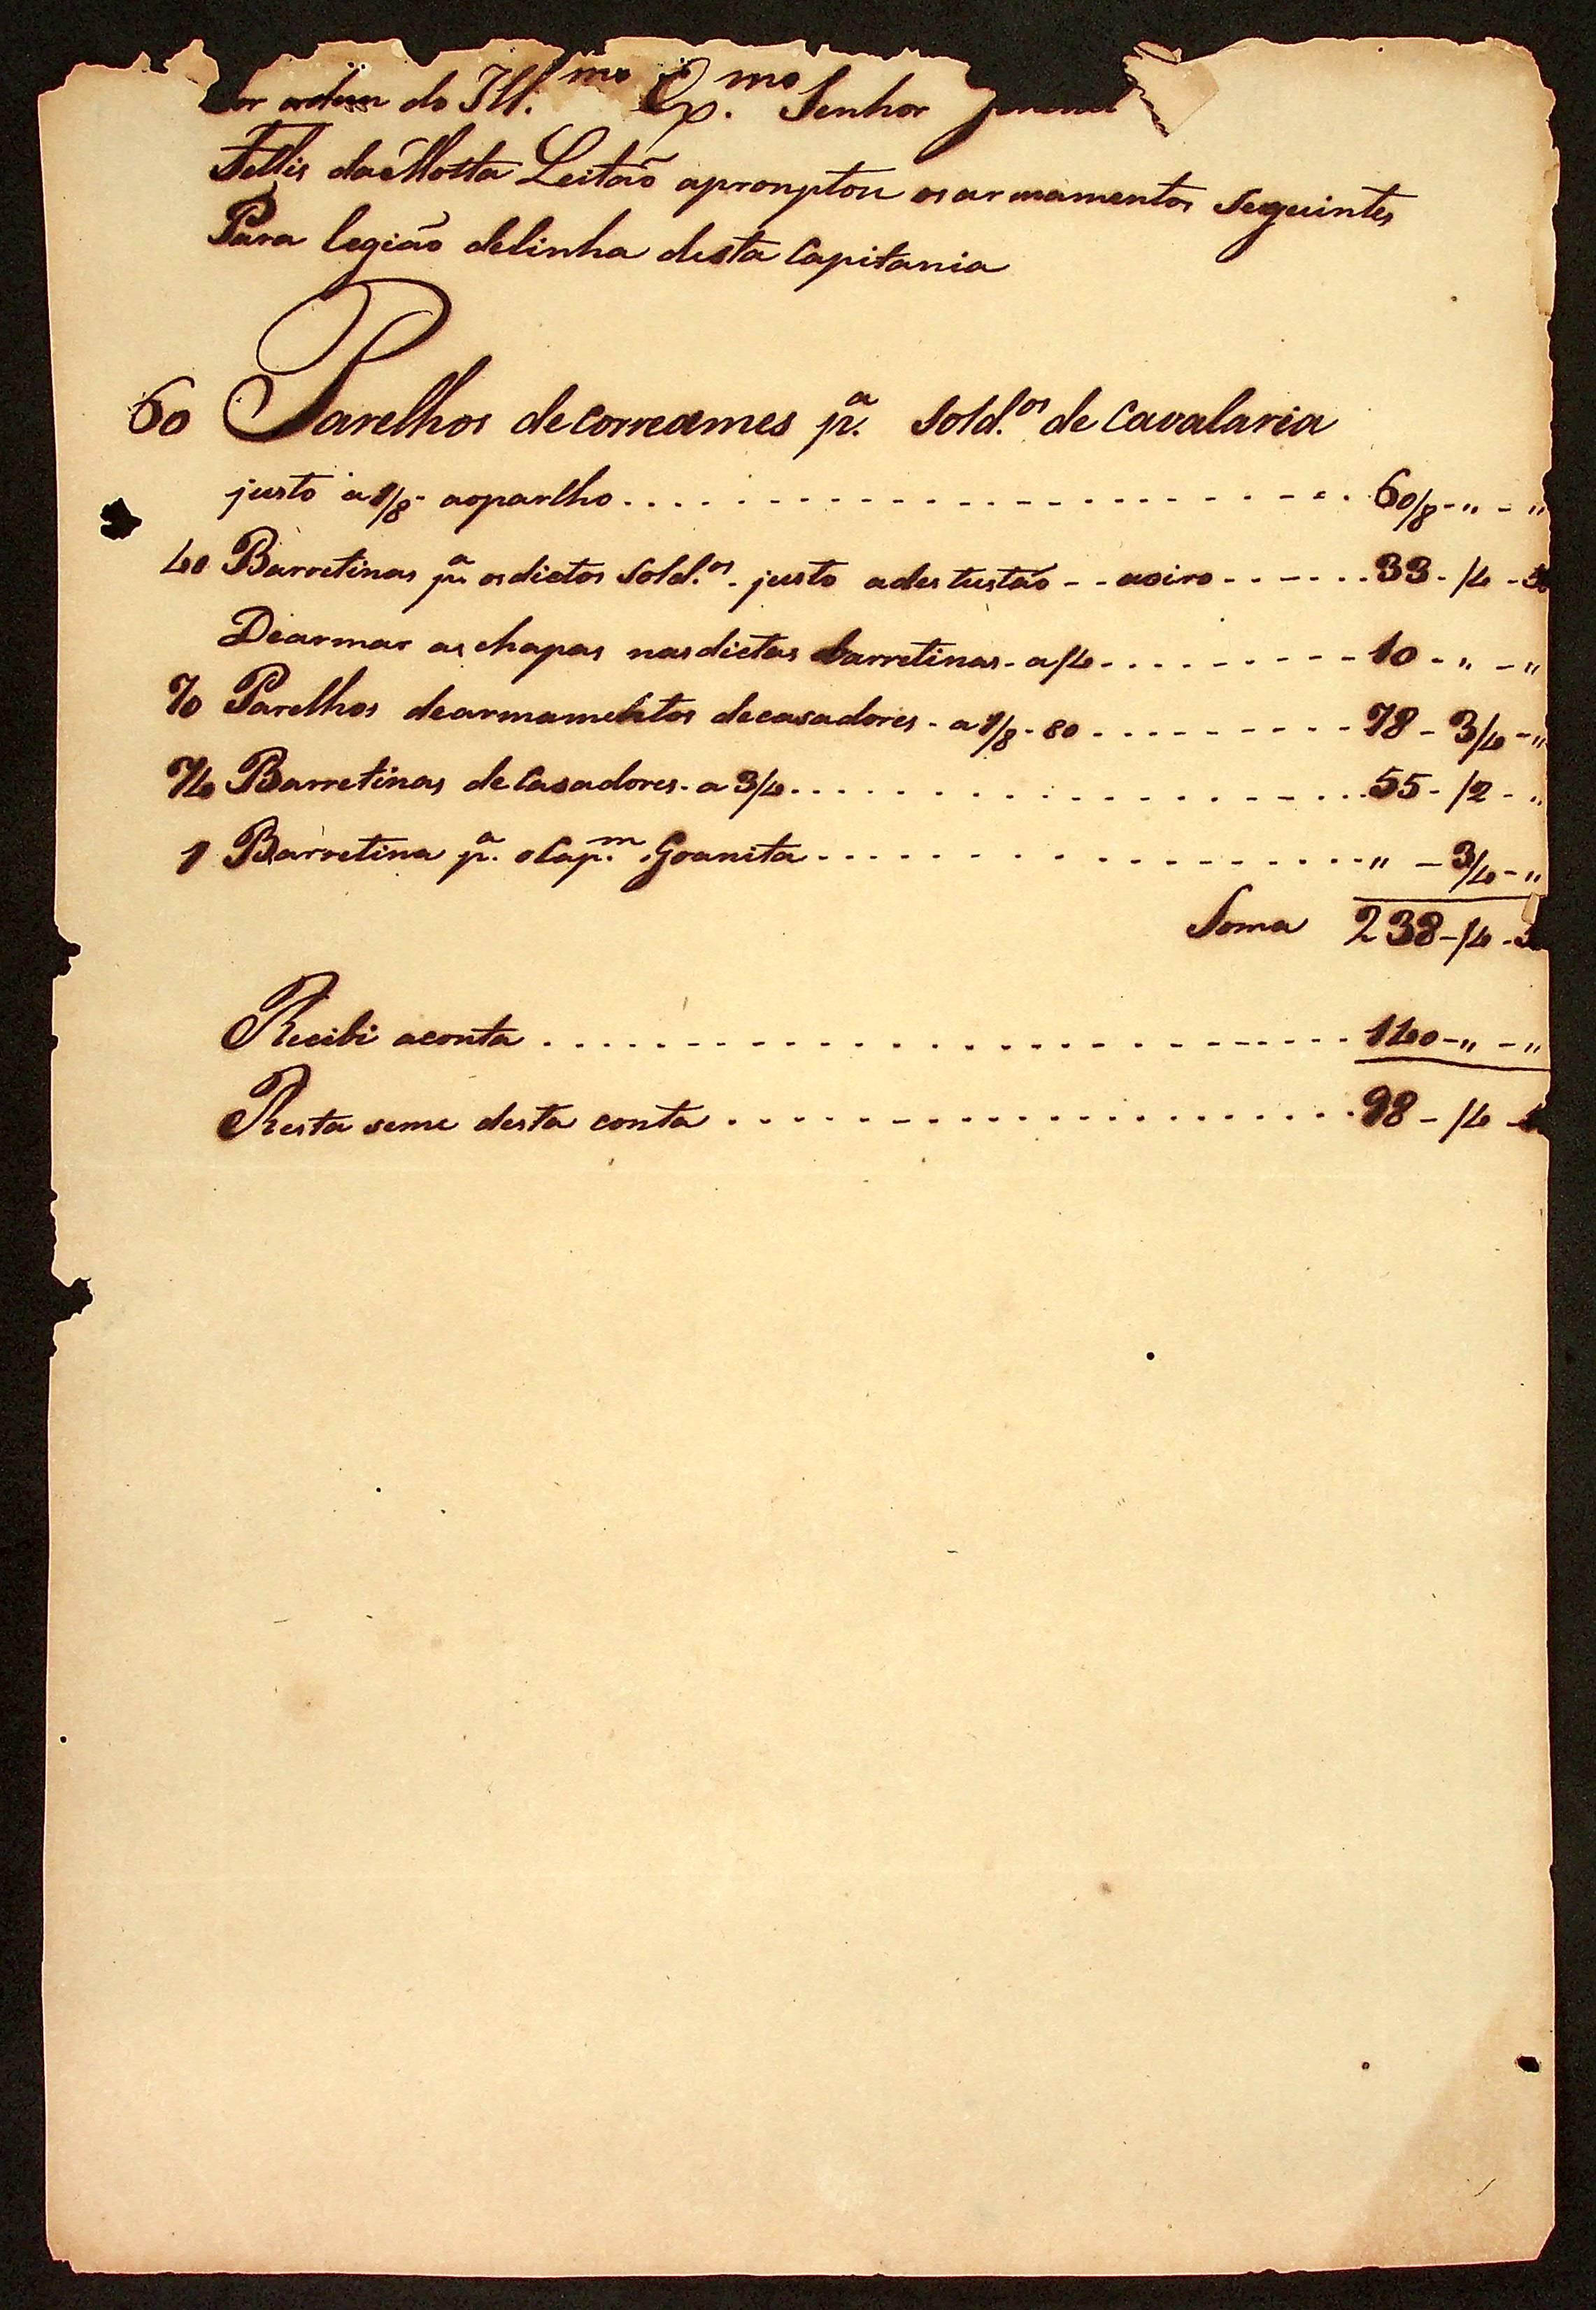 Por ordem do Ill.mo Ex.mo Senhor General
Fellis da Motta Leitão apromptou os armamentos Seguintes
Para legião delinha desta Capitania
60 Parelhos decorreames p.ª Sold.os de Cavalaria
justo a 1/8 - aoparlho 60/8 - " - "
40 Barretinas p.ª osdictos Sold.os justo a des tustão - - aoiro 33 - /4 -
Dearmar as chapas nasdictas barretinas - a /4 10 - " - "
70 Parelhos dearmamentos decasadores - a 1/8 - 80 78 - 3/4 - "
74 Barretinas de Casadores - a 3/4 55 - /2 - "
1 Barretina p.ª o Cap.m Goanita " - 3/4 - "
Soma 238 - /4 -
Recibi aconta 140 - " - "
Resta seme desta conta 98 - /4 -